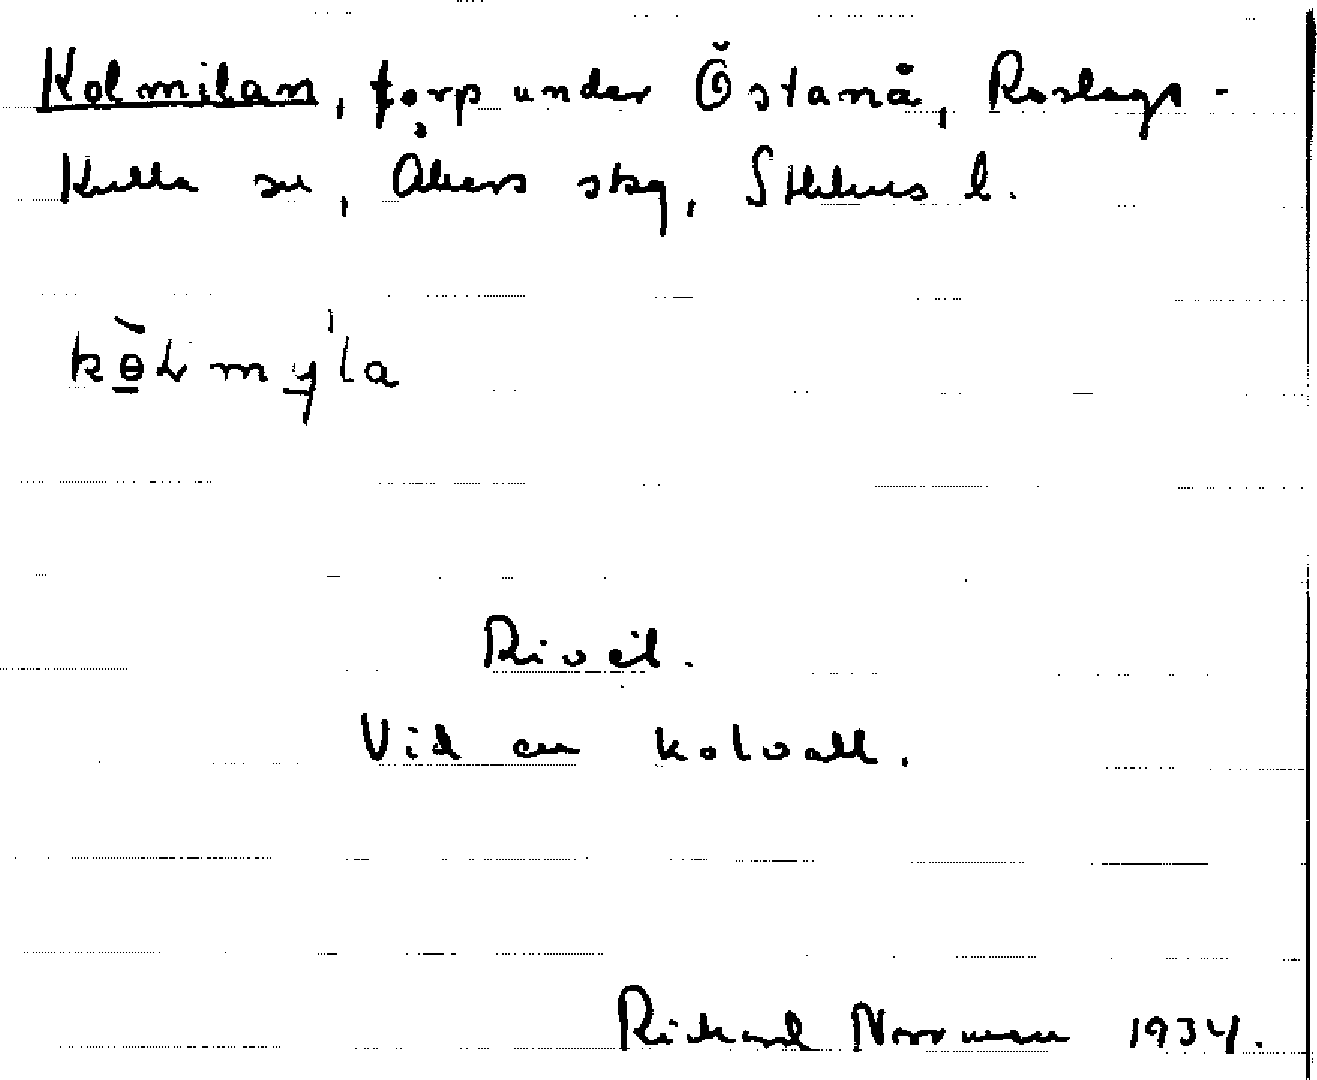 Kolmilan, torp under Östanå, Roslags-
Kulla sn, Åkers skg, Sthlms l.
kɵ̀lmy̲'la
Rivet.
Vid en kolvall.
Richard Norrman 1934.